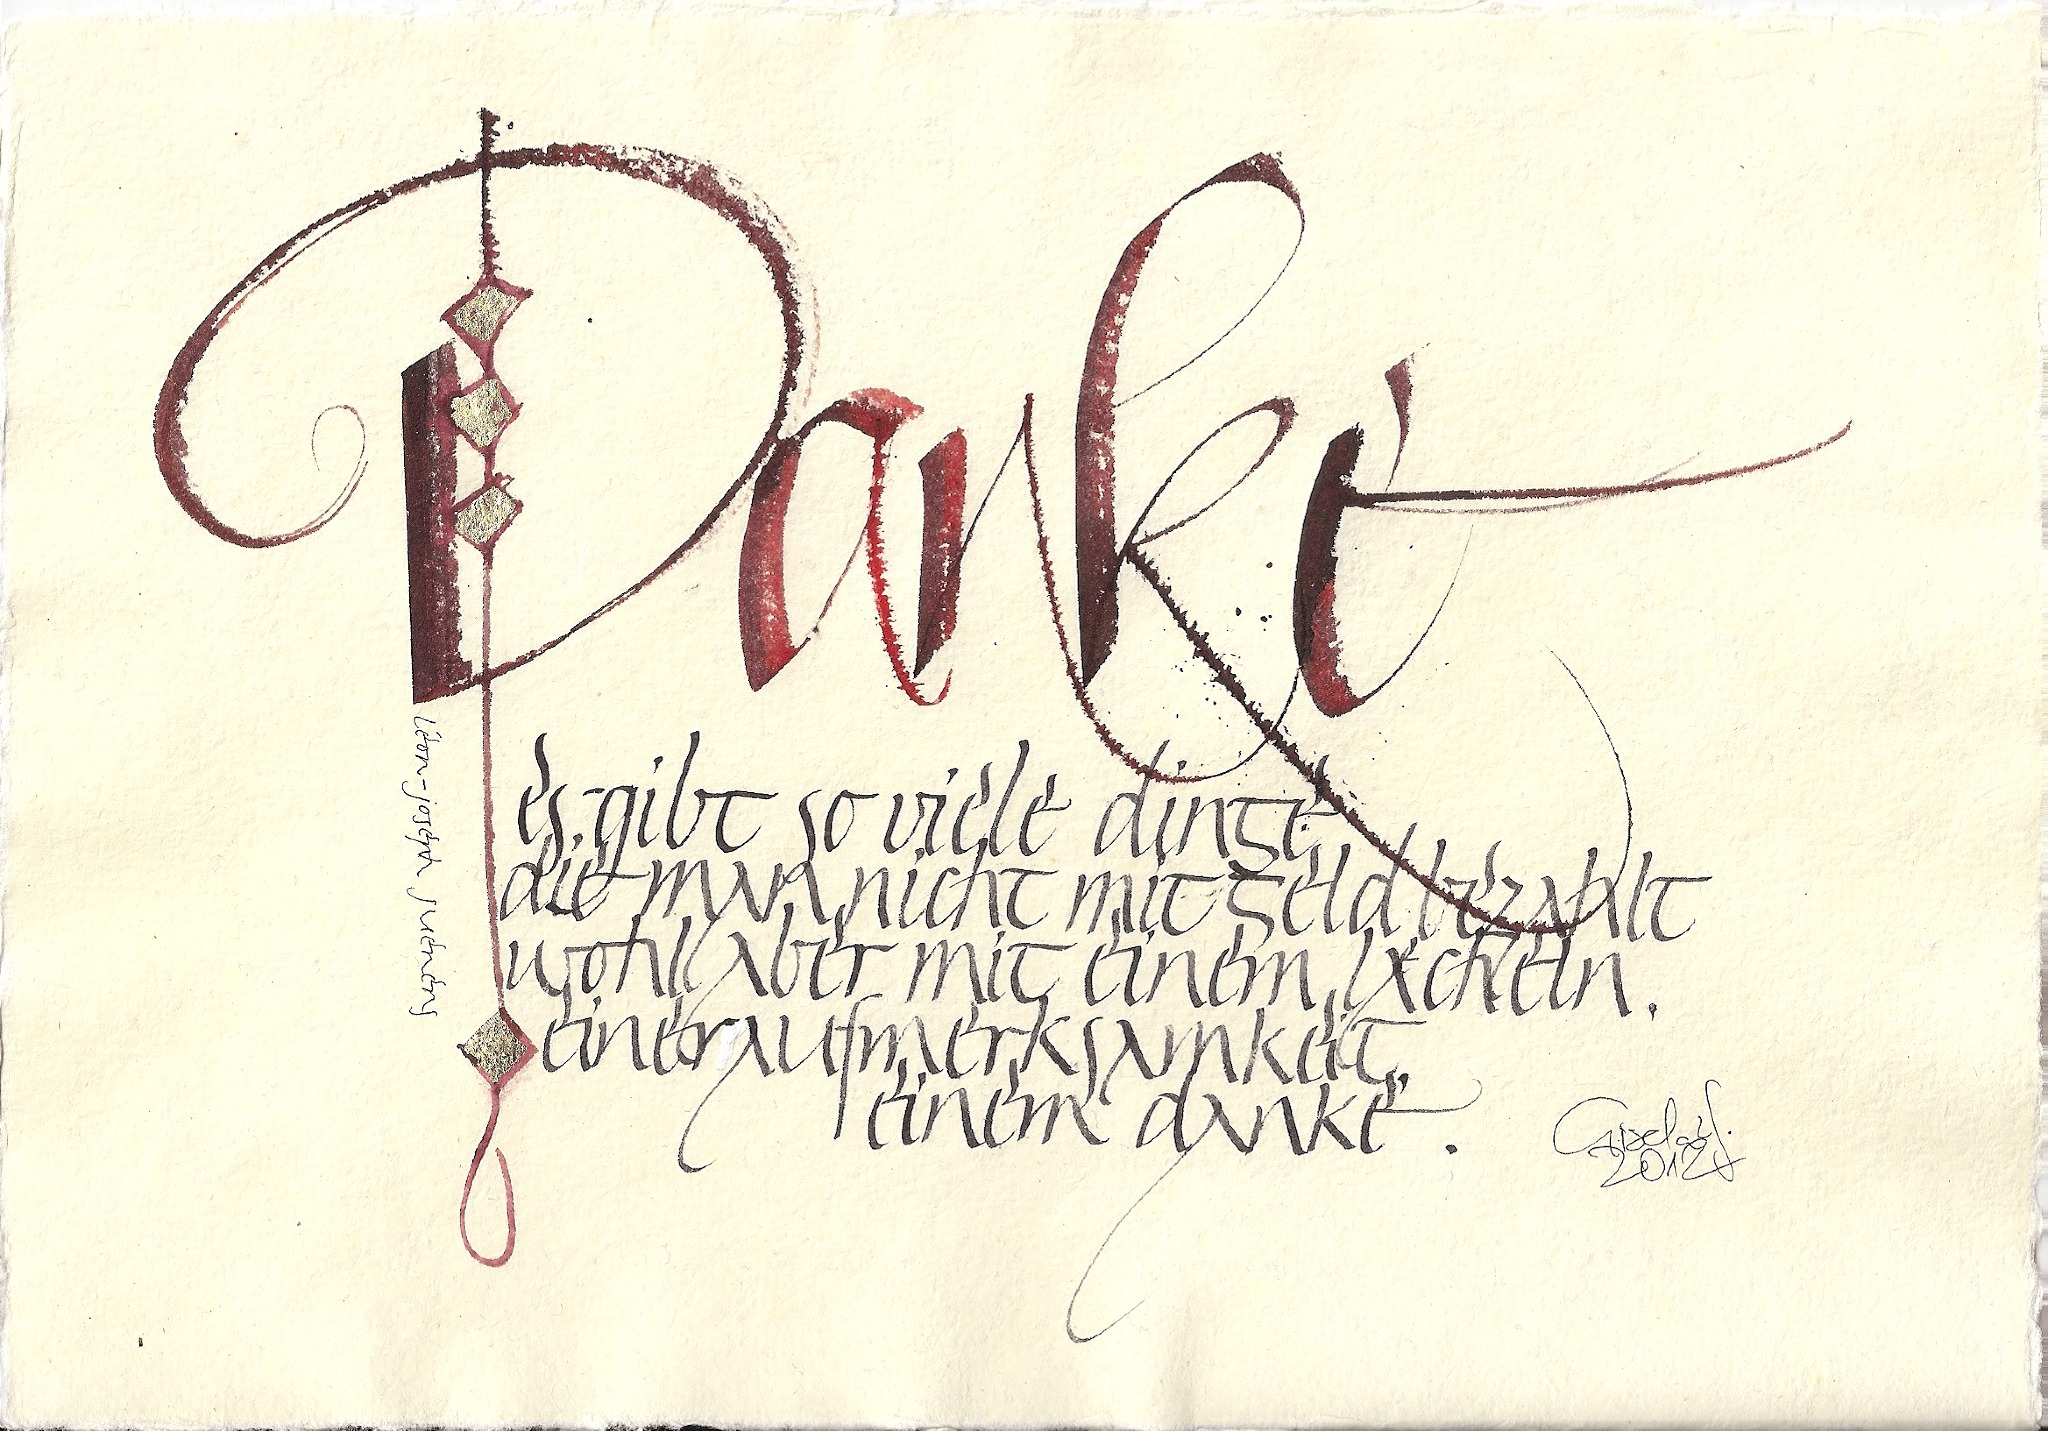 Danke
es gibt so viele dinge
die man nicht mit geld bezahlt
wohl aber mit einem lächeln.
einer aufmerksamkeit,
einem danke.
léon-joseph suenens
2012